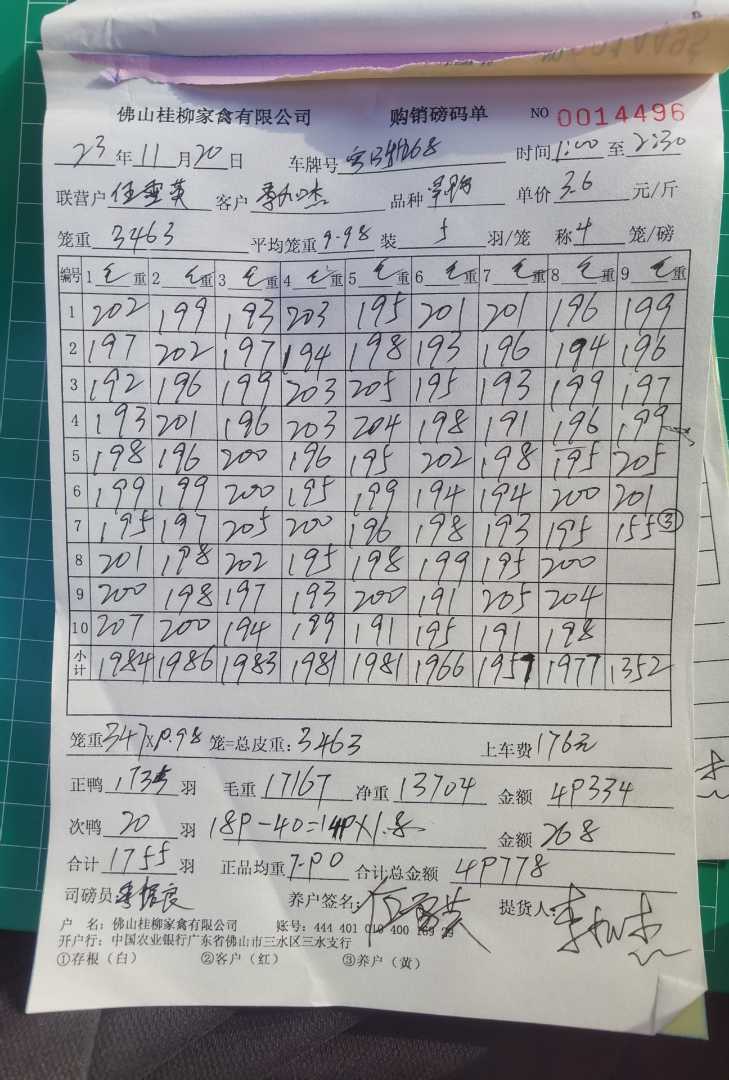 佛山桂柳家禽有限公司 购销磅码单 NO 0014496
23 年 11 月 20 日 车牌号 时间 1:00 至 2:30
联营户 客户 品种 单价 3.6 元/斤
笼重 3463 平均笼重 9.98 装 5 羽/笼 称 4 笼/磅
编号 1 毛重 2 毛重 3 毛重 4 毛重 5 毛重 6 毛重 7 毛重 8 毛重 9 毛重
1 202 199 193 203 195 201 201 196 199
2 197 202 197 194 198 193 196 194 196
3 192 196 199 203 205 195 193 199 197
4 193 201 196 203 204 198 191 196 199
5 198 196 200 196 195 202 198 195 205
6 199 199 200 195 199 194 194 200 201
7 195 197 205 200 196 198 193 195 155 ③
8 201 198 202 195 198 199 195 200
9 200 198 197 193 200 191 205 204
10 207 200 194 199 191 195 191 198
小计 1984 1986 1983 1981 1981 1966 1957 1977 1352
笼重 347 X 9.98 笼=总皮重: 3463 上车费 176元
正鸭 1735 羽 毛重 17167 净重 13704 金额 49334
次鸭 20 羽 189-40=149X1.8 金额 268
合计 1755 羽 正品均重 7.90 合计总金额 49778
司磅员 养户签名: 提货人:
户 名: 佛山桂柳家禽有限公司 账号: 444 401 010 400 169 29
开户行: 中国农业银行广东省佛山市三水区三水支行
①存根(白) ②客户(红) ③养户(黄)